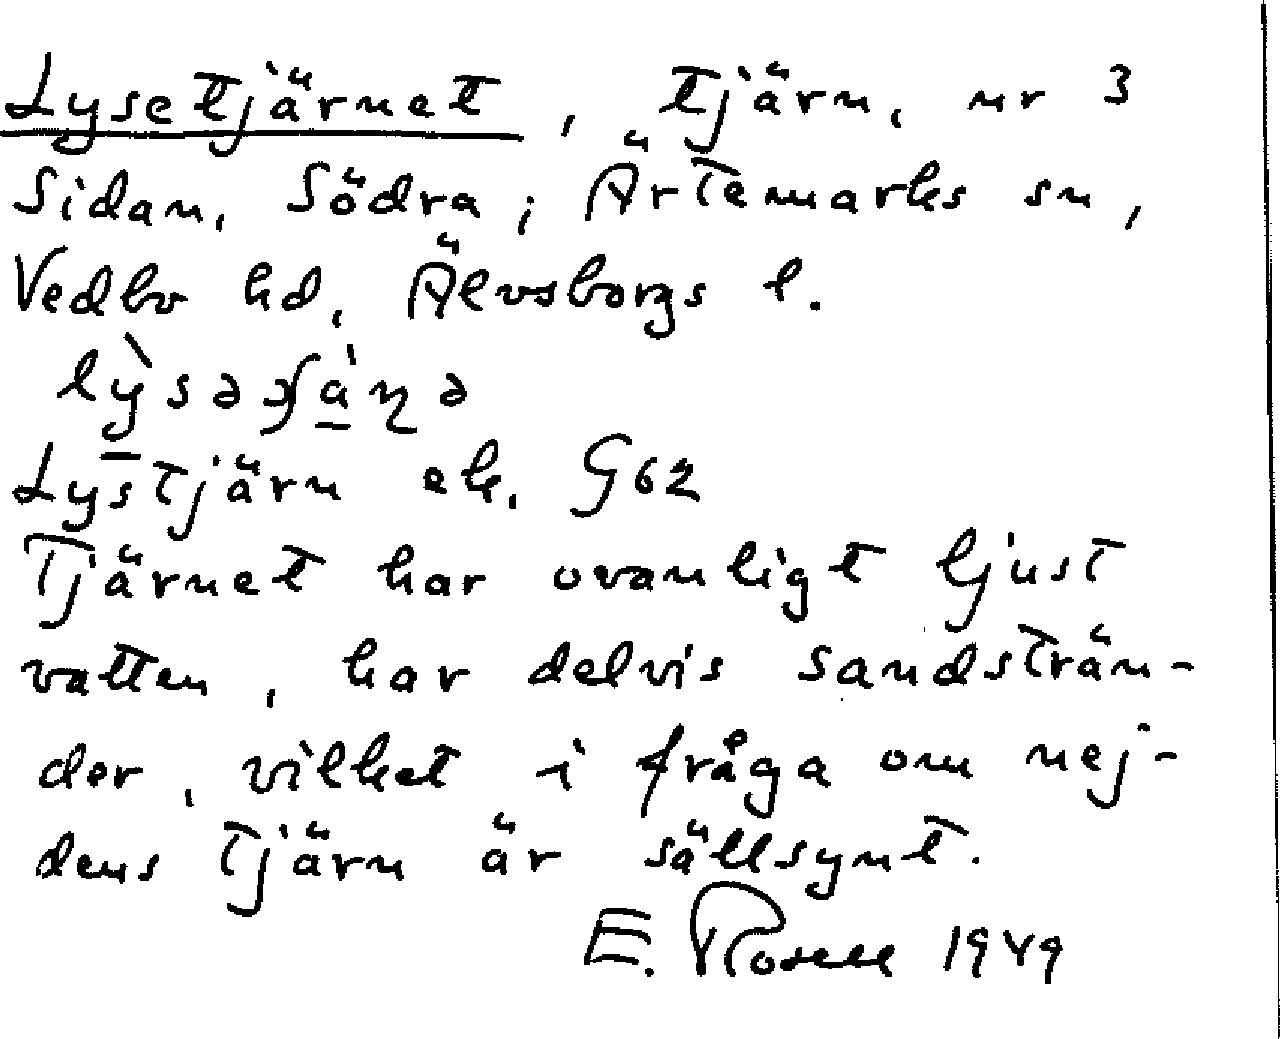 Lysetjärnet, tjärn, nr 3
Sidan, Södra, i Ärtemarks sn,
Vedbo hd, Älvsborgs l.
Lystjärn ek. G62
Tjärnet har ovanligt ljust
vatten, har delvis sandsträn-
der, vilket i fråga om nej-
dens tjärn är sällsynt.
E. Rosell 1949